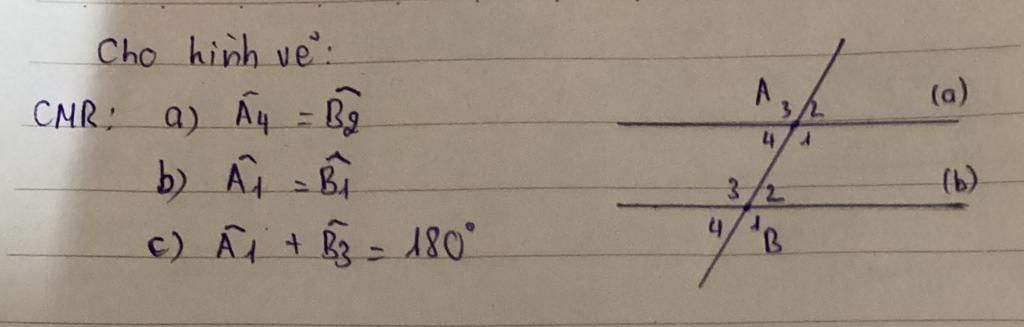 Cho hình vẽ:
CMR: a) Â4 = B̂2
b) Â1 = B̂1
c) Â1 + B̂3 = 180°
A 3 2 (a)
4 1
3 2 (b)
4 1 B